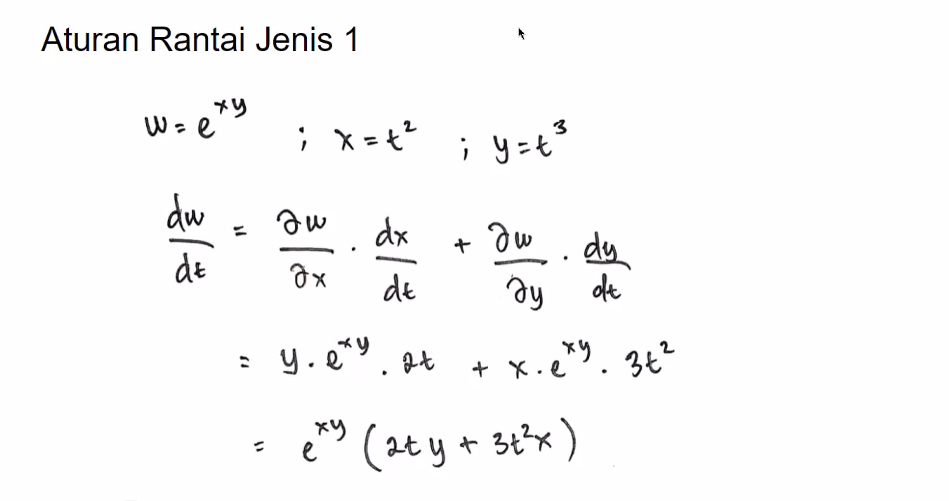 Aturan Rantai Jenis 1
w = e^{xy} ; x = t² ; y = t³
dw/dt = ∂w/∂x · dx/dt + ∂w/∂y · dy/dt
= y · e^{xy} · 2t + x · e^{xy} · 3t²
= e^{xy} (2ty + 3t²x)